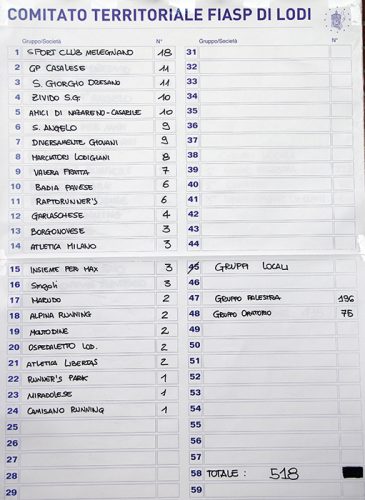 COMITATO TERRITORIALE FIASP DI LODI
Gruppo/Società N° Gruppo/Società N°
1 SPORT CLUB MELEGNANO 18
2 GP CASALESE 11
3 S. GIORGIO DRESANO 11
4 ZIVIDO S.G. 10
5 AMICI DI NAZARENO-CASARILE 10
6 S. ANGELO 9
7 DIVERSAMENTE GIOVANI 9
8 MARCIATORI LODIGIANI 8
9 VALERA FRATTA 7
10 BADIA PAVESE 6
11 RAPTORUNNER'S 6
12 GARLASCHESE 4
13 BORGONOVESE 3
14 ATLETICA MILANO 3
15 INSIEME PER MAX 3
16 Singoli 3
17 MARUDO 2
18 ALPINA RUNNING 2
19 MOLTODINE 2
20 OSPEDALETTO LOD. 2
21 ATLETICA LIBERTAS 2
22 RUNNER'S PARK 1
23 MIRADOLESE 1
24 CAMISANO RUNNING 1
25
26
27
28
29
31
32
33
34
35
36
37
38
39
40
41
42
43
44
45 GRUPPI LOCALI
46
47 GRUPPO PALESTRA 196
48 GRUPPO ORATORIO 75
49
50
51
52
53
54
55
56
57
58 TOTALE: 518
59